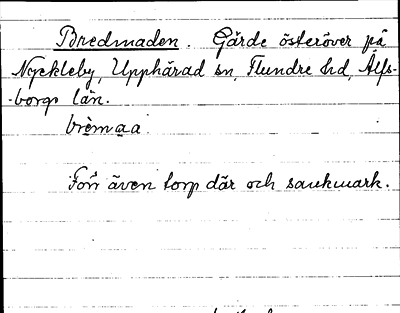 Bredmaden. Gärde österöver på
Nyckleby, Upphärad sn, Flundre hd, Älfs-
-borgs län.
brèmaa
Förr även torp där och sankmark.